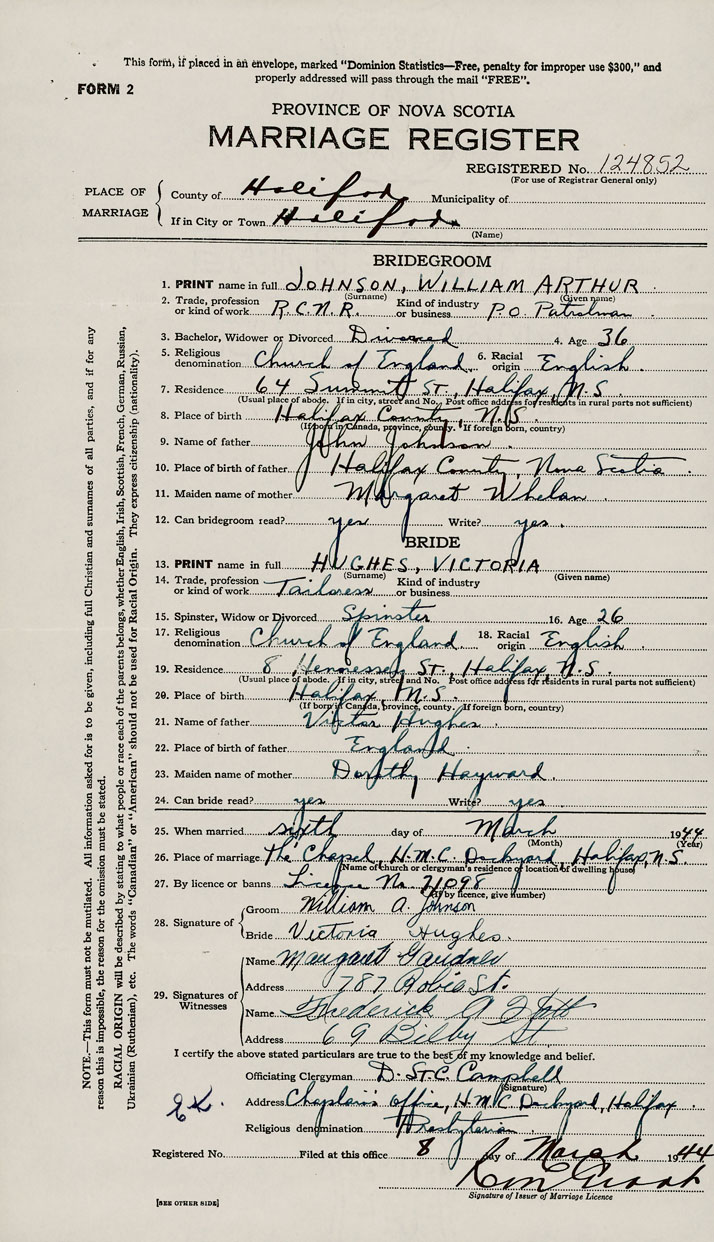 This form, if placed in an envelope, marked "Dominion Statistics—Free, penalty for improper use $300," and
properly addressed will pass through the mail "FREE".
FORM 2
PROVINCE OF NOVA SCOTIA
MARRIAGE REGISTER
REGISTERED No. 124852
(For use of Registrar General only)
PLACE OF MARRIAGE
County of Halifax Municipality of
If in City or Town Halifax
(Name)
BRIDEGROOM
1. PRINT name in full JOHNSON, WILLIAM ARTHUR
(Surname) (Given name)
2. Trade, profession or kind of work R.C.N.R. Kind of industry or business P.O. Patrolman
3. Bachelor, Widower or Divorced Divorced 4. Age 36
5. Religious denomination Church of England. 6. Racial origin English.
7. Residence 64 Summit St., Halifax, N.S.
(Usual place of abode. If in city, street and No. Post office address for residents in rural parts not sufficient)
8. Place of birth Halifax County, N.S.
(If born in Canada, province, county. If foreign born, country)
9. Name of father John Johnson.
10. Place of birth of father Halifax County, Nova Scotia.
11. Maiden name of mother Margaret Whelan.
12. Can bridegroom read? yes Write? yes.
BRIDE
13. PRINT name in full HUGHES, VICTORIA
(Surname) (Given name)
14. Trade, profession or kind of work Tailoress Kind of industry or business
15. Spinster, Widow or Divorced Spinster 16. Age 26
17. Religious denomination Church of England 18. Racial origin English.
19. Residence 8 Hennessey St., Halifax, N.S.
(Usual place of abode. If in city, street and No. Post office address for residents in rural parts not sufficient)
20. Place of birth Halifax, N.S.
(If born in Canada, province, county. If foreign born, country)
21. Name of father Victor Hughes.
22. Place of birth of father England.
23. Maiden name of mother Dorothy Hayward.
24. Can bride read? yes Write? yes.
25. When married sixth day of March 1944
(Month) (Year)
26. Place of marriage The Chapel, H.M.C. Dockyard, Halifax, N.S.
(Name of church or clergyman's residence or location of dwelling house)
27. By licence or banns Licence No. 21098
(If by licence, give number)
28. Signature of
Groom William A. Johnson
Bride Victoria Hughes.
29. Signatures of Witnesses
Name Margaret Gardner
Address 787 Robie St.
Name Frederick A
Address 69 Bilby St
I certify the above stated particulars are true to the best of my knowledge and belief.
Officiating Clergyman D. St.C. Campbell
(Signature)
Address Chaplain's Office, H.M.C. Dockyard, Halifax.
Religious denomination Presbyterian.
Registered No. Filed at this office 8 day of March 1944
Signature of Issuer of Marriage Licence
[SEE OTHER SIDE]
NOTE.—This form must not be mutilated. All information asked for is to be given, including full Christian and surnames of all parties, and if for any
reason this is impossible, the reason for the omission must be stated.
RACIAL ORIGIN will be described by stating to what people or race each of the parents belongs, whether English, Irish, Scottish, French, German, Russian,
Ukrainian (Ruthenian), etc. The words "Canadian" or "American" should not be used for Racial Origin. They express citizenship (nationality).